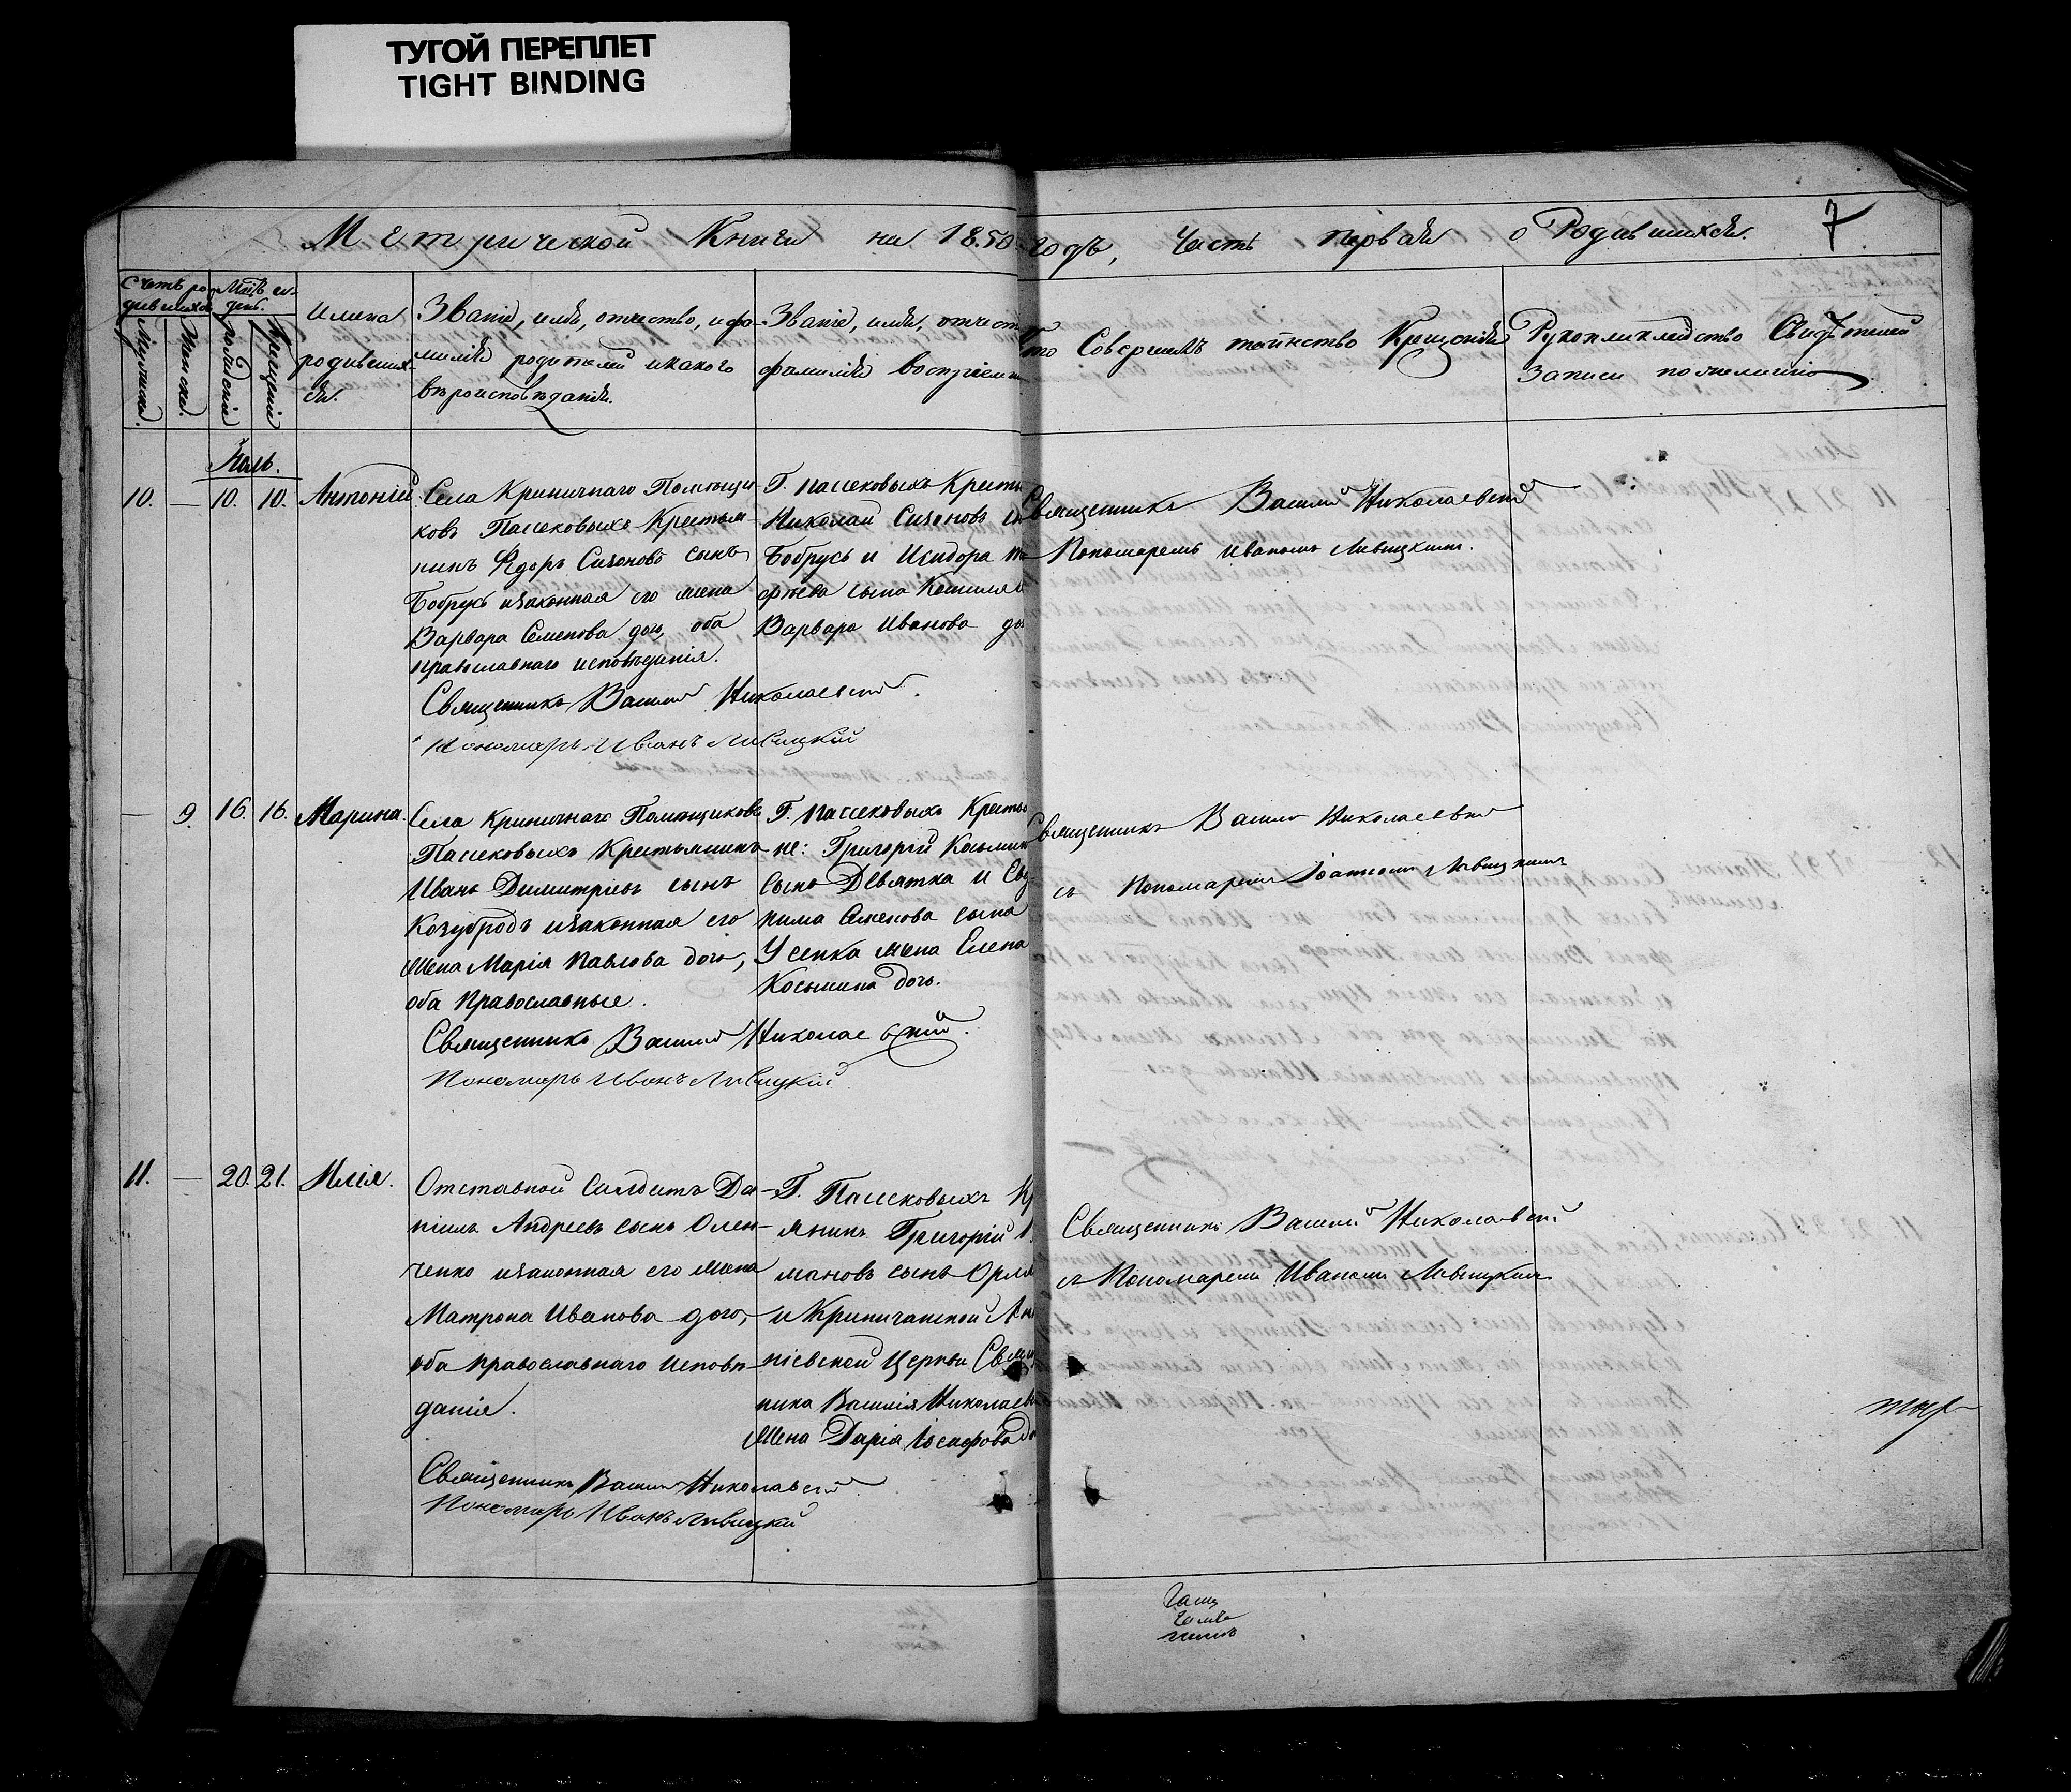 ТУГОЙ ПЕРЕПЛЕТ
TIGHT BINDING
Метрической Книги на 1850
годъ, Часть первая о Родившихся. 7
Счетъ ро-
дившихся
Мѣсяцъ и
день.
Мужеска.
Женска.
рожденія
Крещенія
Имена
родивших-
ся.
Званіе, имя, отчество, и фа-
милія родителей и какого
вѣроисповѣданія.
Званіе, имя, отчест
фамилія воспріемн
Кто Совершалъ таинство Крещенія
Рукоприкладство Свидѣтелей
Записи по желанію
Іюль.
10. — 10. 10. Антоній
Села Криничнаго Помѣщи-
ковъ Пассековыхъ Крестья-
нинъ Ѳедоръ Сизоновъ сынъ
Бобрусь и законная его жена
Варвара Семенова дочь, оба
православнаго исповѣданія.
Священникъ Василій Николаевскій.
Пономарь Иванъ Лѣвицкій
Г. Пассековыхъ Крестья
Николай Сизоновъ сы
Бобрусь и Исидора
сына
Варвара Иванова до
Священникъ Василій Николаевскій
Пономаремъ Иваномъ Лѣвицкимъ.
— 9. 16. 16. Марина.
Села Криничнаго Помѣщиковъ
Пассековыхъ Крестьянинъ
Иванъ Димитріевъ сынъ
Козубродъ и законная его
жена Марія Павлова дочь,
оба Православные.
Священникъ Василій Николаевскій.
Пономарь Иванъ Лѣвицкій
Г. Пассековыхъ Крестья
не: Григорій Косьмин
Сынъ Девятка и Ев
Семенова сына
Усенка жена Елена
Косьмина дочь.
Священникъ Василій Николаевскій
съ Пономаремъ Іоанномъ Лѣвицкимъ
11. — 20. 21. Илія.
Отставной Солдатъ Да-
ніилъ Андреевъ сынъ Олен-
ченко и законная его жена
Матрона Иванова дочь,
оба православнаго исповѣ-
данія.
Священникъ Василій Николаевскій
Пономарь Иванъ Лѣвицкій
Г. Пассековыхъ Кр
янинъ Григорій
мановъ сынъ Орля
и Криничанской
ніевской Церкви Свящ
ника Василія Николаев
жена Дарія Іосифова до
Священникъ Василій Николаевскій
съ Пономаремъ Иваномъ Лѣвицкимъ